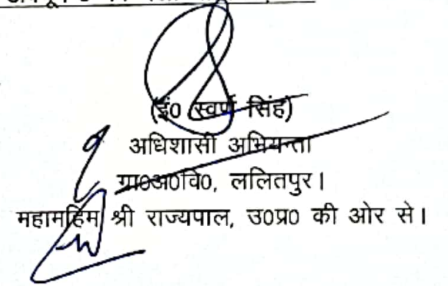 (इं० स्वर्ण सिंह)
अधिशासी अभियन्ता
ग्रा०अ०वि०, ललितपुर।
महामहिम श्री राज्यपाल, उ०प्र० की ओर से।